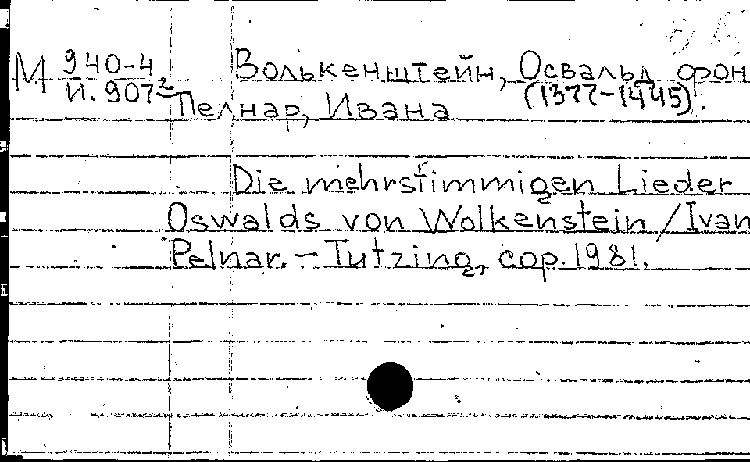 М 940-4 Волькенштейн, Освальд фон
И. 907² (1377-1445).
Пелнар, Ивана
Die mehrstimmigen Lieder
Oswalds von Wolkenstein / Ivan
Pelnar. - Tutzing, cop. 1981.